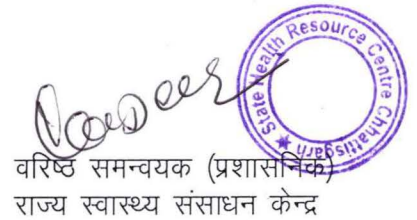 State Health Resource Centre Chhattisgarh
वरिष्ठ समन्वयक (प्रशासनिक)
राज्य स्वास्थ्य संसाधन केन्द्र